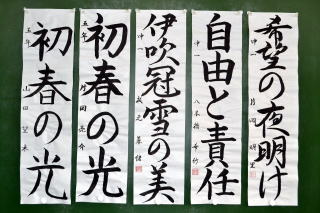 希望の夜明け
中一
自由と責任
中一
伊吹冠雪の美
中一
初春の光
五年
初春の光
五年 山田望未